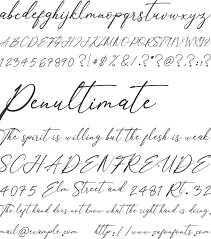 abcdefghijklmnopqrstuvwxyz
ABCDEFGHIJKLMNOPQRSTUVWXYZ
1234567890
Penultimate
The spirit is willing but the flesh is weak
SCHADENFREUDE
4075 Elm Street and 2481 Rt. 32
The left hand does not know what the right hand is doing.
email@example.com